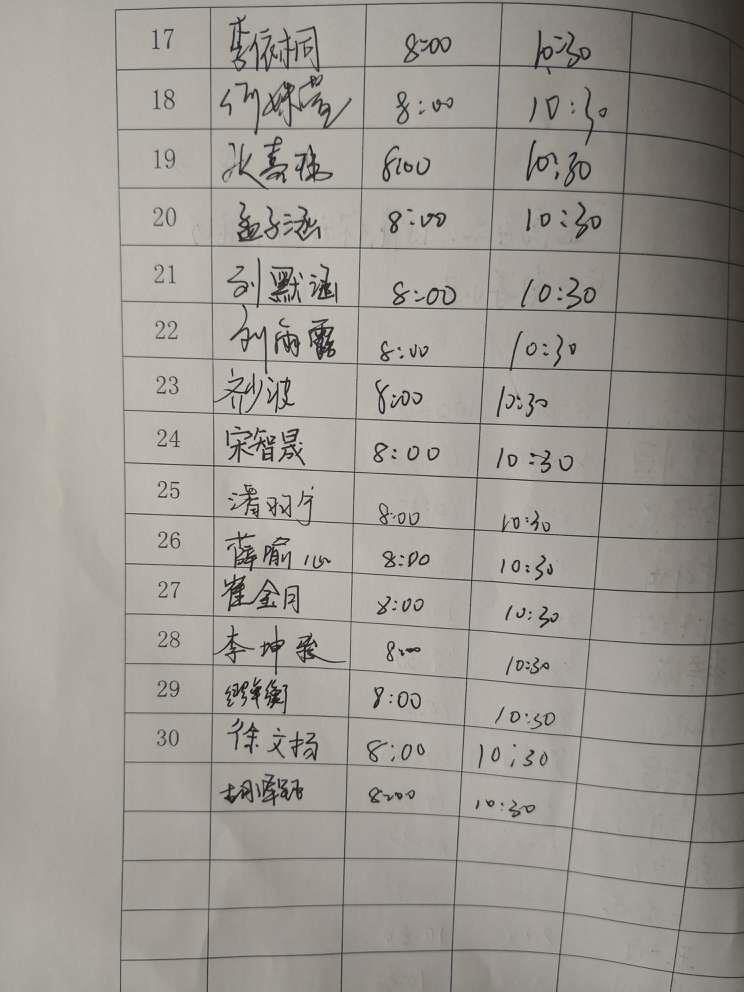 17 李依桐 8:00 10:30
18 8:00 10:30
19 8:00 10:30
20 孟子涵 8:00 10:30
21 刘默涵 8:00 10:30
22 刘雨露 8:00 10:30
23 8:00 10:30
24 宋智晟 8:00 10:30
25 8:00 10:30
26 薛喻心 8:00 10:30
27 崔金月 8:00 10:30
28 李坤 8:00 10:30
29 8:00 10:30
30 徐文扬 8:00 10:30
8:00 10:30